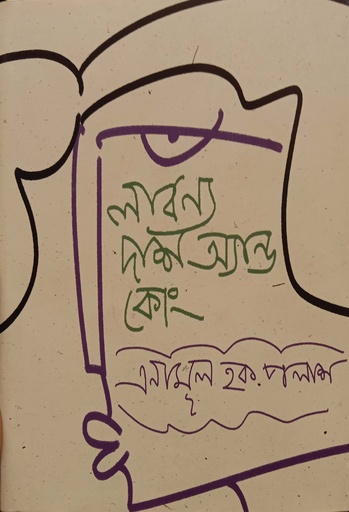 লাবণ্য
দাশ অ্যান্ড
কোং
এনামুল হক পলাশ